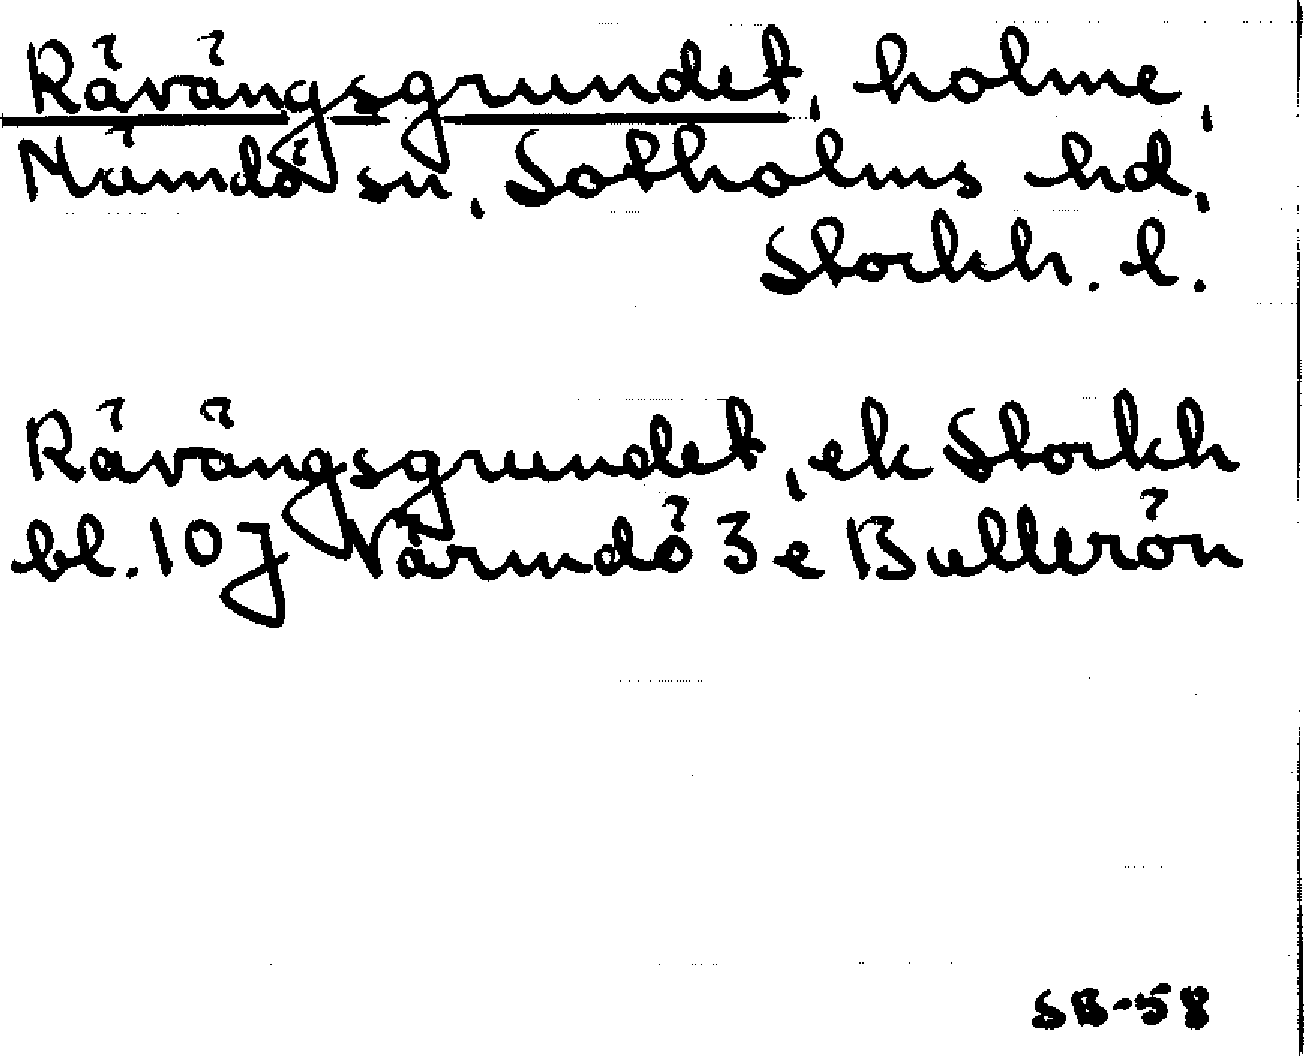 Rävängsgrundet, holme,
Nämdö sn, Sotholms hd,
Stockh. l.
Rävängsgrundet, ek Stockh
bl. 10J Värmdö 3e Bullerön
SB-58